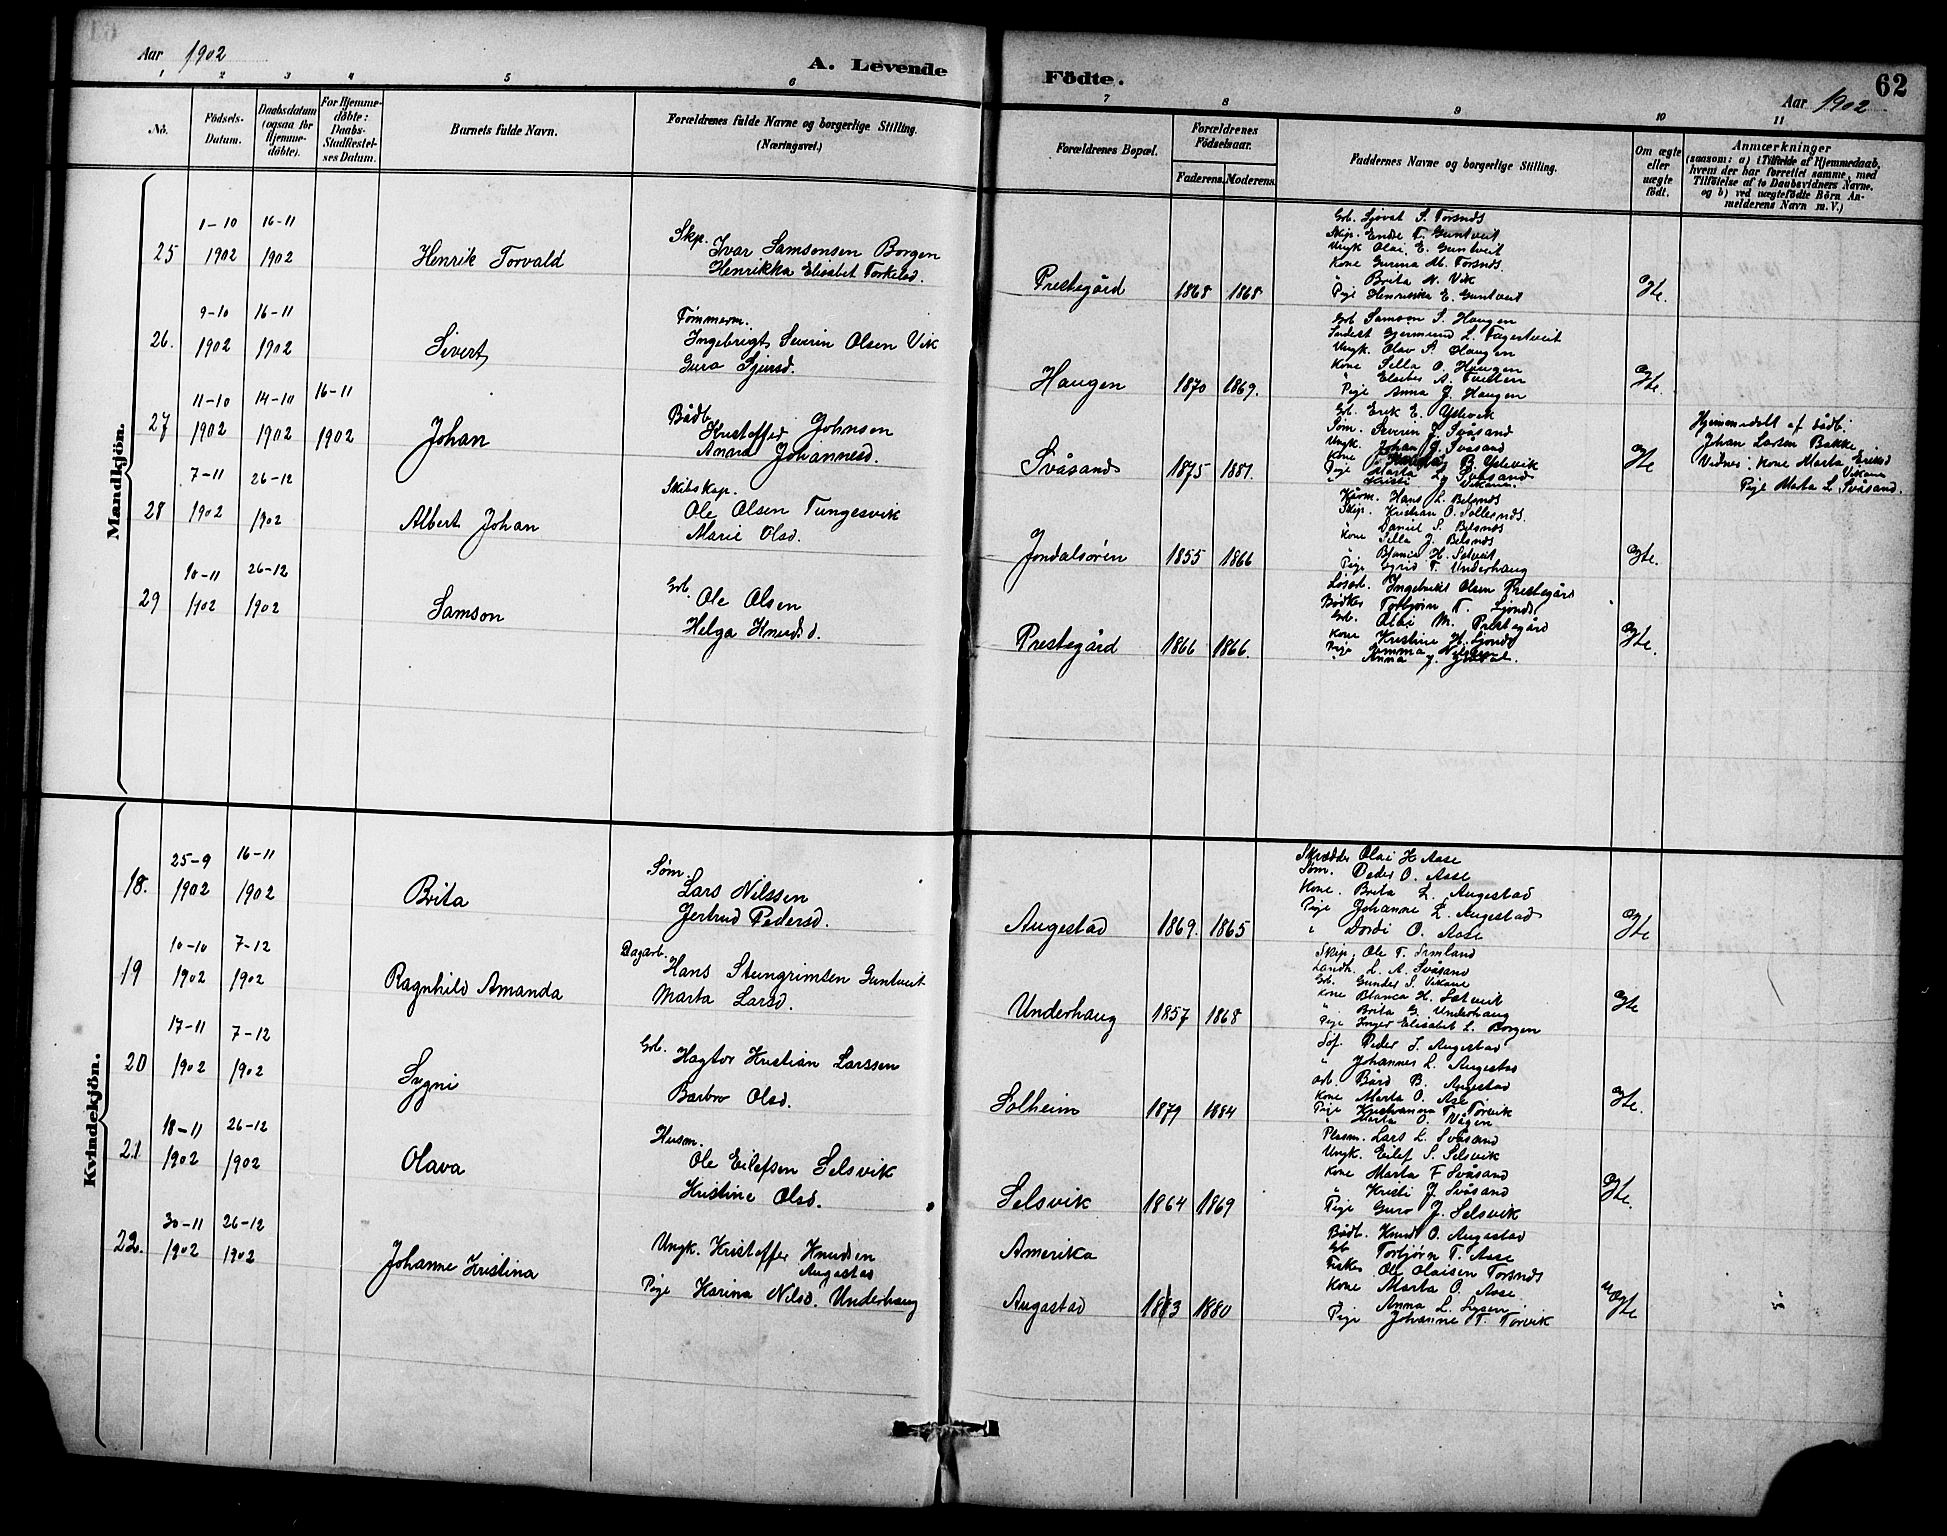 Aar 1902
A. Levende
Födte.
62
Aar 1902
1 2 3 4 5 6 7 8 9 10 11
No.
Födsels-Datum.
Daabsdatum (ogsaa for Hjemme-döbte).
For Hjemme-döbte: Daabs-Stadfæstel-ses Datum.
Barnets fulde Navn.
Forældrenes fulde Navne og borgerlige Stilling.
(Næringsvei.)
Forældrenes Bopæl.
Forældrenes Födselsaar.
Faderens. Moderens.
Faddernes Navne og borgerlige Stilling.
Om ægte eller uægte födt.
Anmærkninger
(saasom: a) i Tilfælde af Hjemmedaab,
hvem der har forrettet samme, med
Tilföielse af to Daabsvidners Navne.
og b) ved uægtefödte Börn An-
melderens Navn m. V.)
Mandkjön.
25
1-10 1902
16-11 1902
Henrik Torvald
Skp. Ivar Samsonsen Borgen
Henrikka Elisabet Torkelsd.
Prestegård
1868 1868
Gb. Sjovat S. Torsnes
Skip. Endre T. Guntveit
Ungk. Olai E. Guntveit
Kone Gurina M. Torsnes
" Brita N. Vik
Pige Henrikka E. Guntveit
Ægte.
26.
9-10 1902
16-11 1902
Sivert
Tømmerm.
Ingebrigt Severin Olsen Vik
Guro Sjursd.
Haugen
1870 1869.
Gb. Samson S. Haugen
Gjermund L. Fagertveit
Ungk. Olav S. Haugen
Kone Silla O. Haugen
Pige Anna J. Haugen
Ægte.
27
11-10 1902
14-10 1902
16-11 1902
Johan
Bådb.
Kristoffer Johnsen
Anna Johannesd.
Svåsand
1875 1881.
Gb. Erik E. Yslevik
Søm. Severin J. Svåsand
Ungk. Johan J. Svåsand
Kone B. Yslevik
Pige Marta L. Svåsand
" Kristi J. Vikane
Ægte
Hjemmedøbt af bådb.
Johan Larsen Bakke
Vidner: Kone Marta Eriksd Vikane
Pige Marta L. Svåsand.
28
7-11 1902
26-12 1902
Albert Johan
Skibskap.
Ole Olsen Tungesvik
Marie Olsd.
Jondalsøren
1855 1866
Hans L. Belsnes
Skip. Kristian O. Solesnes
" Daniel S. Belsnes
Kone Silla J. Belsnes
" Blanca H. Sætveit
Pige Sygrid T. Underhaug
Ægte.
29
10-11 1902
26-12 1902
Samson
Gb. Ole Olsen
Helga Knudsd.
Prestegård
1866 1866.
Løsarb. Ingebrikt Olsen Prestegård
Bødker Torbjørn T.
Gb. Olai M. Prestegård
Kone Kristine H.
Pige Gemma
" Anna J.
Ægte.
Kvindekjön.
18.
25-9 1902
16-11 1902
Brita
Søm.
Lars Nilssen
Gertrud Pedersd.
Augestad
1869. 1865
Skrædder Olai H. Aase
Søm. Peder O. Aase
Kone. Brita L. Augestad
Pige Johanne L. Augestad
" Dordi O. Aase
Ægte
19
10-10 1902
7-12 1902
Ragnhild Amanda
Dagarb.
Hans Steingrimsen Guntveit
Marta Larsd.
Underhaug
1857 1868
Skip. Ole T. Ormland
Landh. L. A. Svåsand
Gb. Gunder S. Vikane
Kone Blanca H. Sætveit
" Brita G. Underhaug
Pige Inger Elisabet L. Borgen
Ægte
20
17-11 1902
7-12 1902
Sygni
Gb. Hagtor Kristian Larssen
Barbro Olsd.
Solheim
1879 1884
Søf. Peder S. Augestad
" Johannes L. Augestad
Arb. Bård B. Augestad
Kone Marta O. Aase
Pige Kristianna T. Torvik
" Marta O. Vågen
Ægte.
21
18-11 1902
26-12 1902
Olava
Husm.
Ole Eilefsen Selsvik
Kristine Olsd.
Selsvik
1864 1869
Plasm. Lars L. Svåsand
Ungk. Eilef S. Selsvik
Kone Marta F. Svåsand
" Kristi J. Svåsand
Pige Guro J. Selsvik
Ægte.
22.
30-11 1902
26-12 1902
Johanne Kristina
Ungk. Kristoffer Knudsen
Augestad
Pige Karina Nilsd. Underhaug
Amerika
Augestad
1883 1880
Bådb. Knud O. Augestad
Gb Torbjørn T. Aase
Fisker Ole Olaisen Torsnes
Kone Marta O. Aase
" Anna L. Lysen
Pige Johanne T. Torvik
uægte